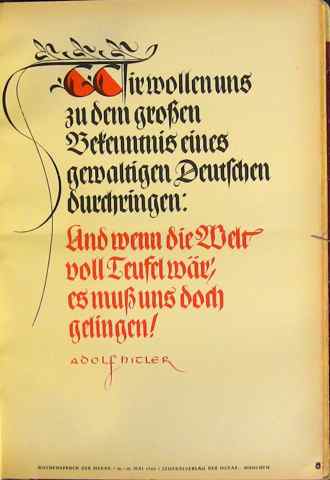 Wir wollen uns
zu dem großen
Bekenntnis eines
gewaltigen Deutschen
durchringen:
Und wenn die Welt
voll Teufel wär,
es muß uns doch
gelingen!
ADOLF HITLER
WOCHENSPRUCH DER NSDAP / MAI / ZENTRALVERLAG DER NSDAP., MÜNCHEN